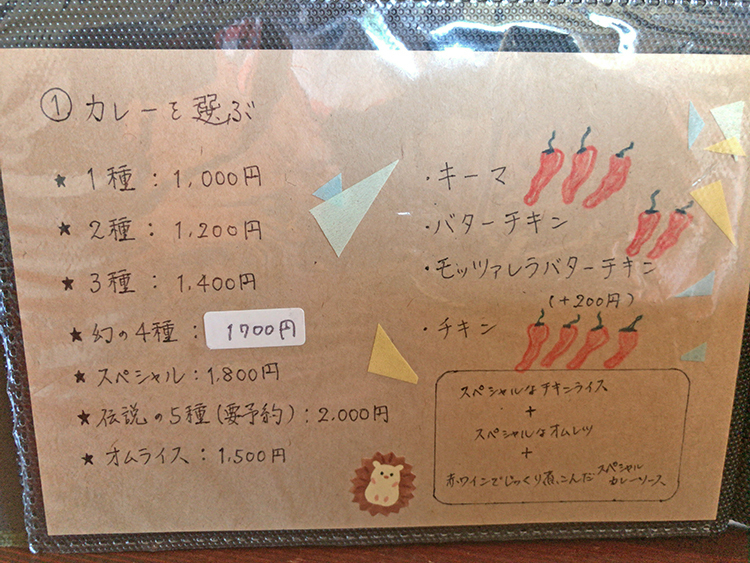 ① カレーを選ぶ
★ 1種：1,000円
★ 2種：1,200円
★ 3種：1,400円
★ 幻の4種：1700円
★ スペシャル：1,800円
★ 伝説の5種(要予約)：2,000円
★ オムライス：1,500円
・キーマ
・バターチキン
・モッツァレラバターチキン
(+200円)
・チキン
スペシャルなチキンライス
+
スペシャルなオムレツ
+
赤ワインでじっくり煮こんだスペシャル
カレーソース